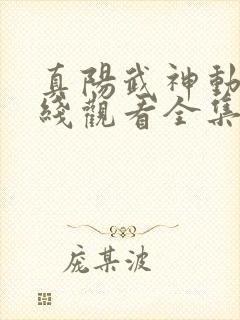 真陽武神動
綫觀看全集
庞某波